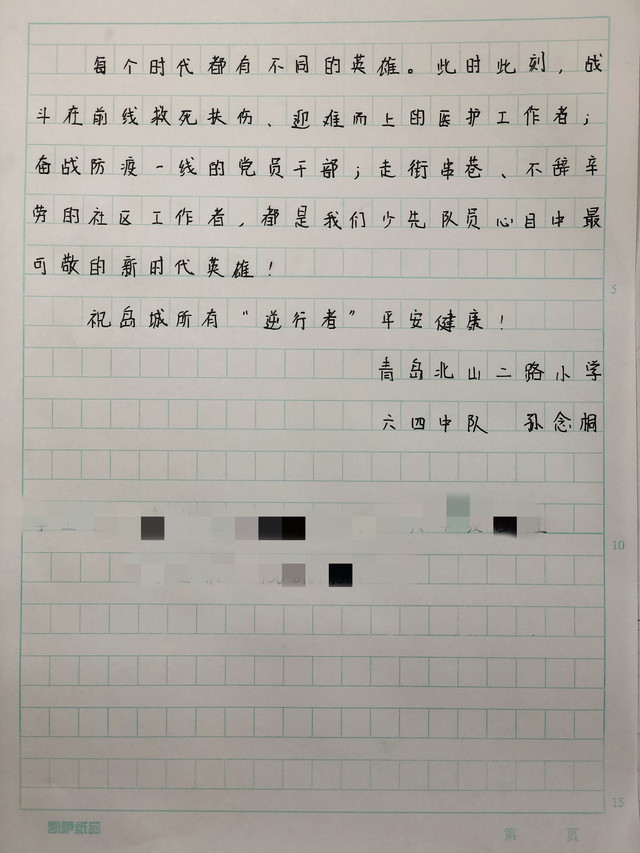 每个时代都有不同的英雄。此时此刻，战
斗在前线救死扶伤、迎难而上的医护工作者；
奋战防疫一线的党员干部；走街串巷、不辞辛
劳的社区工作者，都是我们少先队员心目中最
可敬的新时代英雄！
5
祝岛城所有“逆行者”平安健康！
青岛北山二路小学
六四中队 孙念桐
10
15
凯萨纸品
第 页